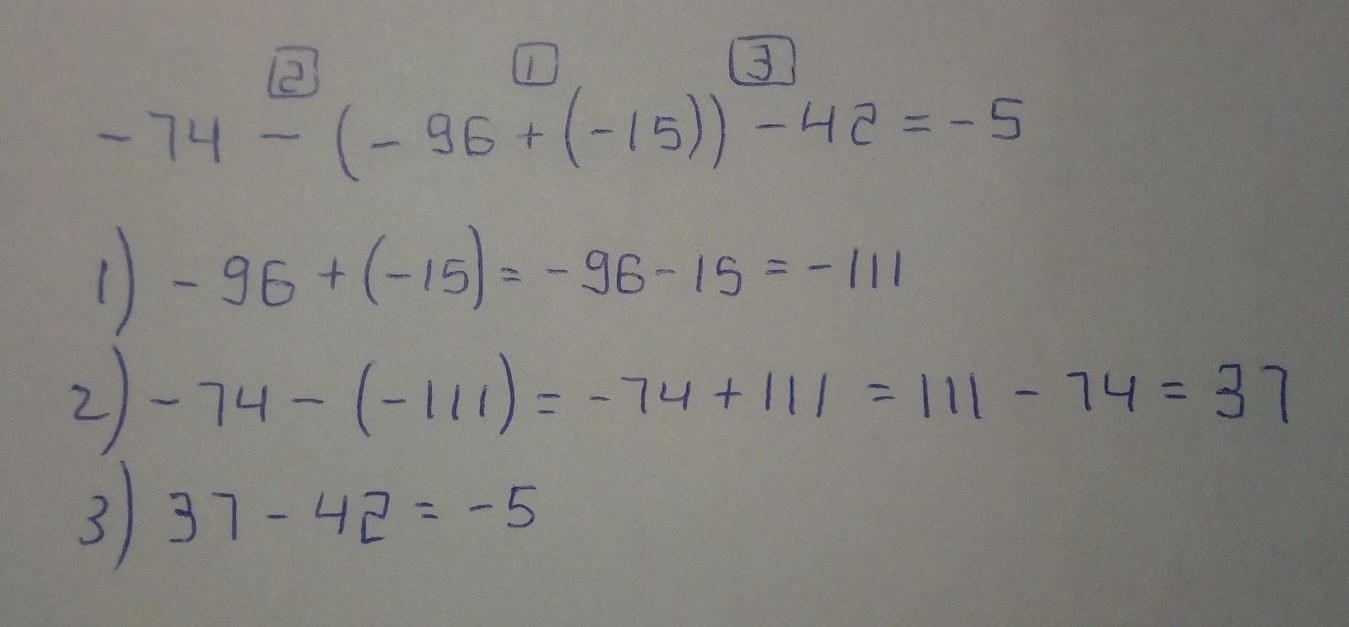 2 1 3
-74 - (-96 + (-15)) - 42 = -5
1) -96 + (-15) = -96 - 15 = -111
2) -74 - (-111) = -74 + 111 = 111 - 74 = 37
3) 37 - 42 = -5